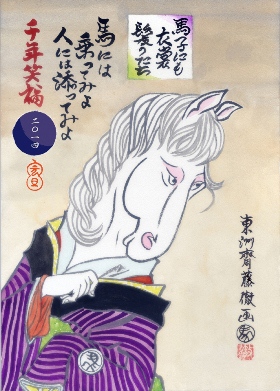 馬子にも
衣裳
髪かたち
馬には
乗ってみよ
人には添ってみよ
千年笑描
二〇一四
元旦
東洲齋藤徹画